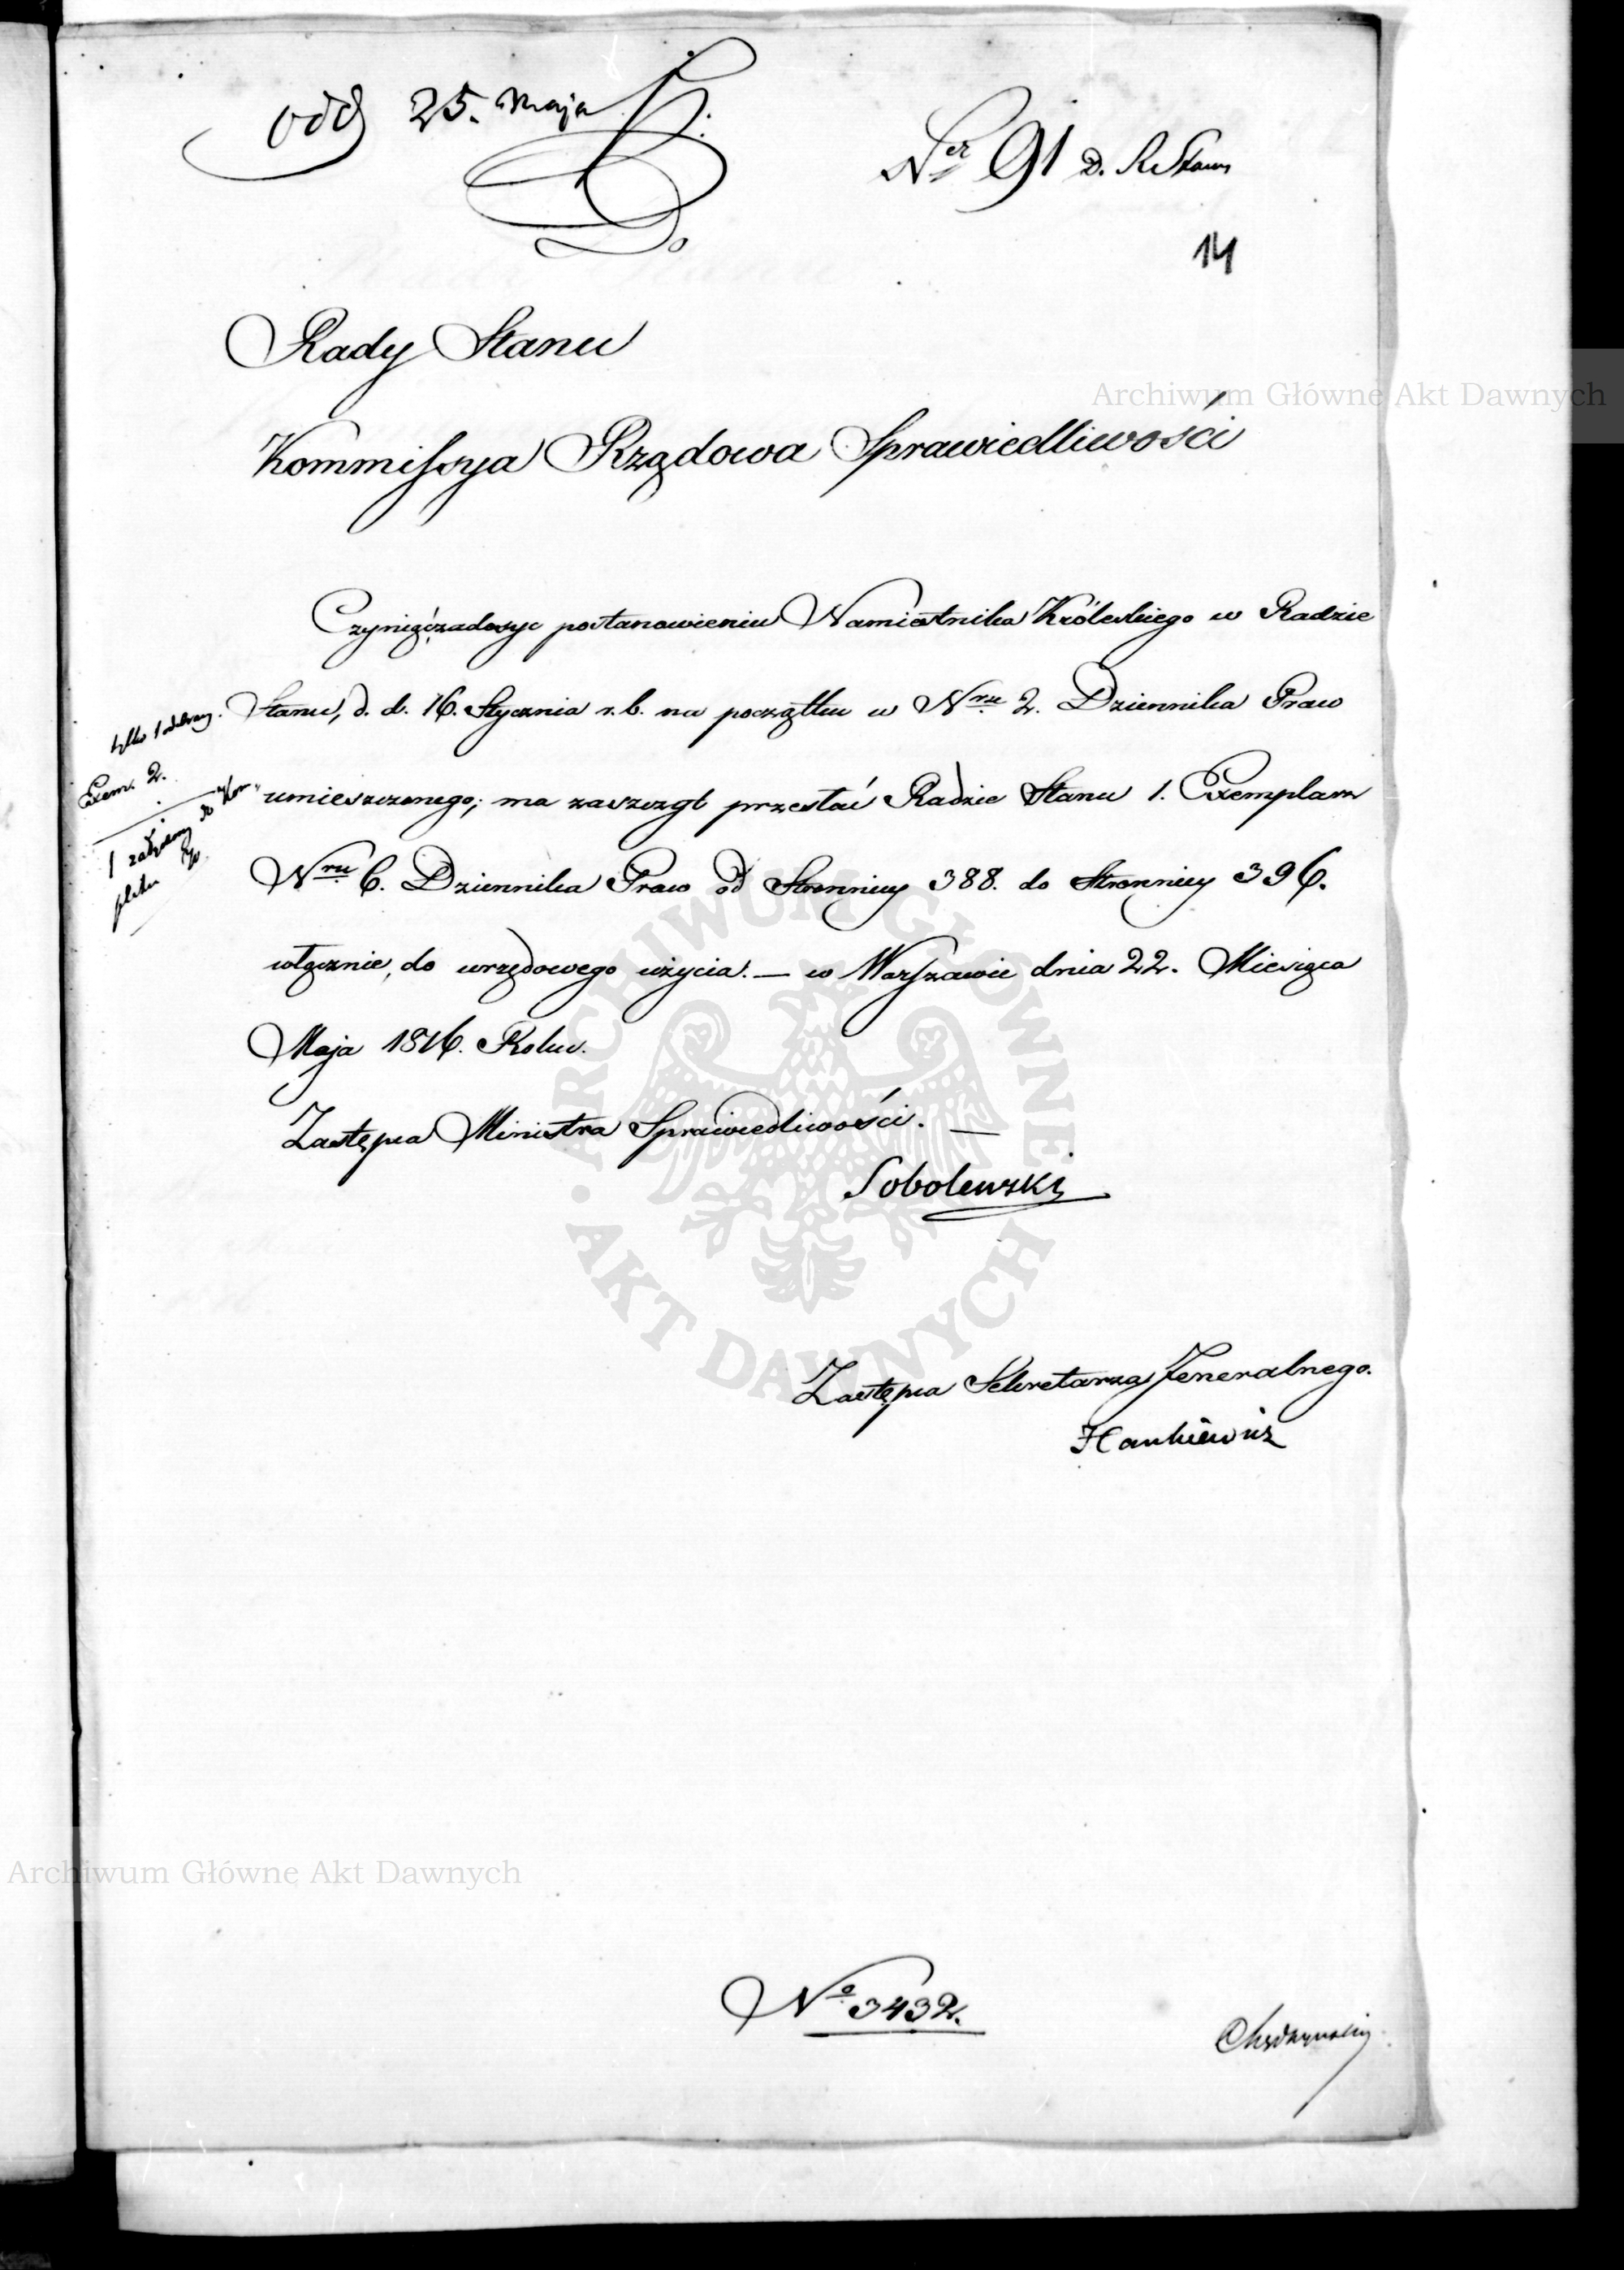 odd 25. Maja
Ner 91 D. R Stanu
14
Do
Rady Stanu
Kommissya Rządowa Sprawiedliwości
Czyniąc zadosyc postanowieniu Namiestnika Królewskiego w Radzie
Stanu, d. d. 16. Stycznia r. b. na początku w Nrze 2. Dziennika Praw
umieszczonego; ma zaszczyt przesłać Radzie Stanu 1. Exemplarz
Nru 6. Dziennika Praw od Stronnicy 388. do Stronnicy 396.
włącznie, do urzędowego użycia. — w Warszawie dnia 22. Miesiąca
Maja 1816. Roku.
tylko 1 odebrany.
Exem. 2.
1 załączony do Kom
pletu
Zastępca Ministra Sprawiedliwości. —
Sobolewski
Zastępca Sekretarza Jeneralnego.
Hankiewicz
No 3432.
Archiwum Główne Akt Dawnych
ARCHIWUM GŁÓWNE
AKT DAWNYCH
Archiwum Główne Akt Dawnych